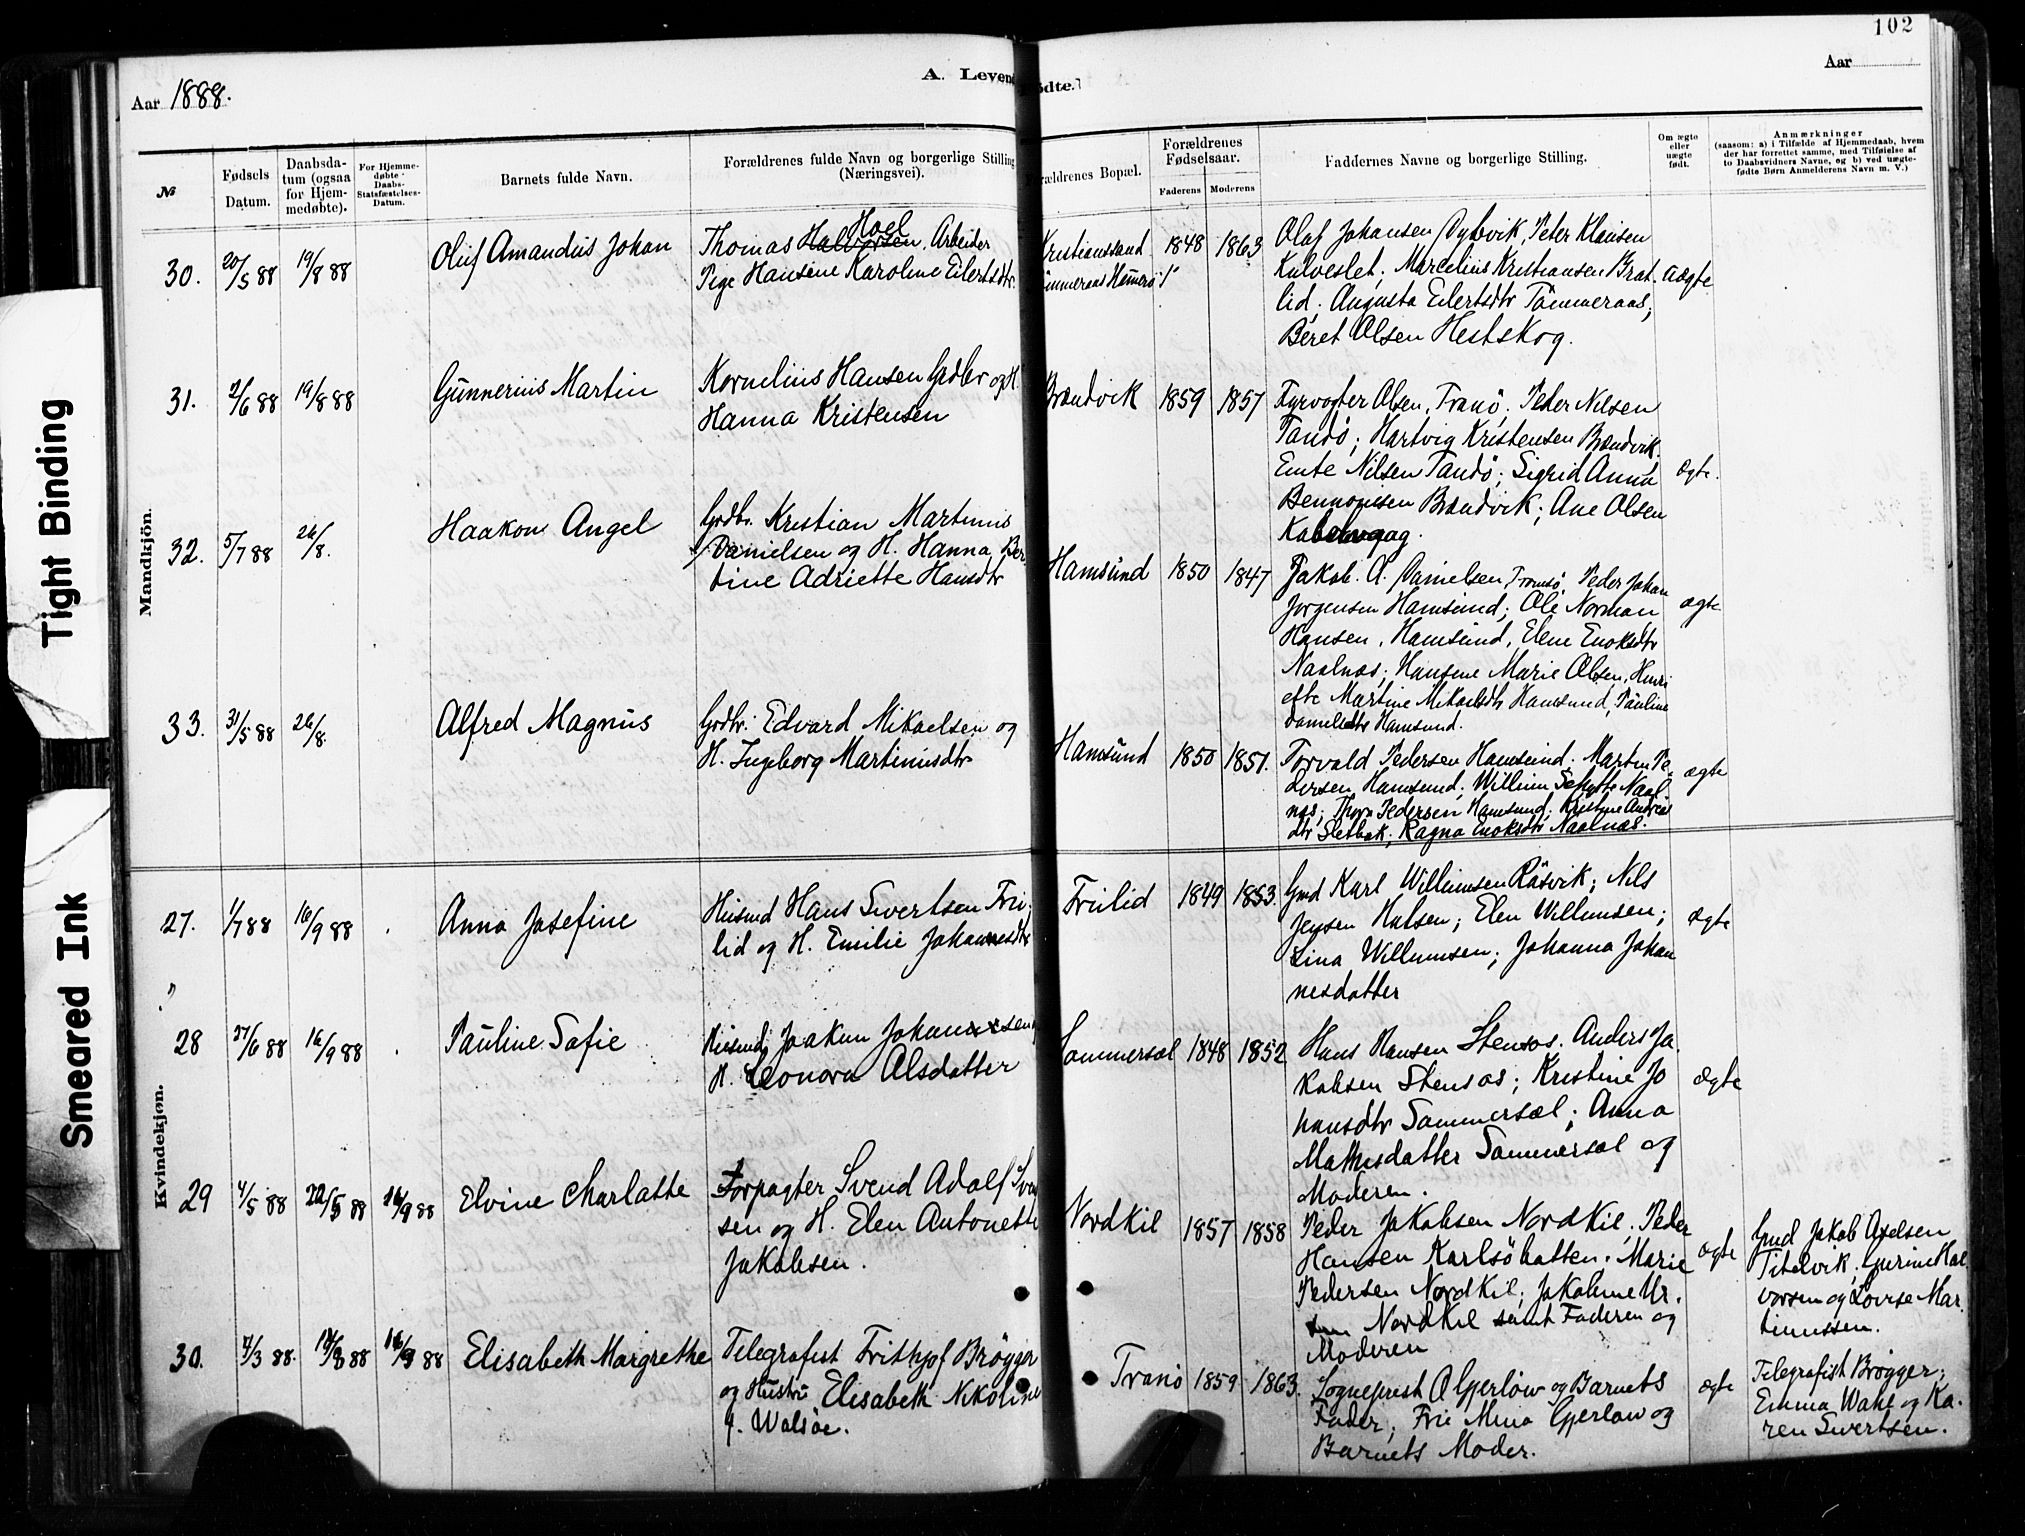 102
A. Levendefødte.
Aar 1888.
Aar
№
Fødsels Datum.
Daabsdatum (ogsaa for Hjemmedøbte).
For Hjemmedøbte Daabs-Statsfæstelses-Datum.
Barnets fulde Navn.
Forældrenes fulde Navn og borgerlige Stilling (Næringsvei).
Forældrenes Bopæl.
Forældrenes Fødselsaar.
Faderens
Moderens
Faddernes Navne og borgerlige Stilling.
Om ægte eller uægte født.
Anmærkninger
(saasom: a) i Tilfælde af Hjemmedaab, hvem
der har forrettet samme, med Tilføielse af
to Daabsvidners Navne, og b) ved uægte-
fødte Børn Anmelderens Navn m. V.)
Tight Binding
Smeared Ink
Mandkjön.
30. 20/5 88 19/8 88 Oluf Amandus Johan
Hoel
Thomas Halvorsen, Arbeider
Pige Hansine Karoline Eilertsdtr.
Kristianssund 1848 1863
Tømmeraas Hamerø
Olaf Johansen Dybvik, Peter Klausen
Kulveslet; Marcelius Kristiansen Brat-
lid; Augusta Eilertsdtr Tömmeraas;
Beret Olsen Hestskog.
uægte
31. 2/6 88 19/8 88 Gunnerius Martin
Kornelius Hansen Grdbr og H.
Hanna Kristensen
Brændvik 1859 1857
Fyrvogter Olsen, Tranö; Peder Nilsen
Tandö; Hartvig Kristensen Brændvik.
Emte Nilsen Tandö; Sigrid Anna
Bennonisen Brændvik; Ane Olsen
ægte.
32. 5/7 88 26/8. Haakon Angel
Grdbr. Kristian Martinus
Danielsen og H. Hanna Ber-
tine Adriette Hansdtr
Hamsund 1850 1847
Jakob. A. Danielsen Tranö, Peder Johan
Jorgensen Hamsund; Ole Norman
Hansen, Hamsund, Elene Enoksdtr
Naalnæs; Hansine Marie Olsen, Henri
ette Martine Mikaelsdtr Hamsund, Pauline
Danielsdtr Hamsund.
ægte
33. 31/5 88 26/8. Alfred Magnus
Grdbr. Edvard Mikaelsen og
H. Ingeborg Martinusdtr
Hamsund 1850 1851.
Torvald Pedersen Hamsund. Martin Pe-
dersen Hamsund; Willum Schytte Naal
næs; Thora Pedersen Hamsund; Kristine Andreas
dtr Sletbak; Ragna Enoksdtr Naalnæs.
ægte
Kvindekjøn.
27. 1/7 88 16/9 88 Anna Josefine
Husmd Hans Sivertsen Fru-
lid og H. Emilie Johannesdtr
Frulid 1849 1853.
Gmd Karl Willumsen Räsvik; Nils
Jensen Hulsen; Elen Willumsen;
Lina Willumsen; Johanna Johan
nesdatter
ægte
28 27/6 88 16/9 88 Pauline Sofie
Husmd; Joakim Johannesen
H. Leonora Olsdatter
Sommersæl 1848 1852
Hans Hansen Stensos. Anders Ja-
kobsen Stensos; Kristine Jo
hansdtr Sammersæl; Anna
Mathisdatter Sammersæl og
Moderen.
ægte
29 4/5 88 22/5 88 16/9 88 Elvine Charlatte
Forpagter Svend Adolf Svend
sen og H. Elen Antonette
Jakobsen.
Nordkil 1857 1858
Peder Jakobsen Nordkil; Peder
Hansen Karlsöhatten. Marie
Pedersen Nordkil; Jakobine
Nordkil samt Faderen og
Moderen
ægte
Gmd Jakob Axelsen
Titelvik; Gurine Hal
vorsen og Lovise Mar-
tinussen.
30. 7/3 88. 18/3 88 16/9 88 Elisabeth Margrethe
Telegrafist Frithjof Brøgger
og Hustru Elisabeth Nikoline
f. Walsöe.
Tranö 1859 1863.
Sogneprest O Gjerløw og Barnets
Fader; Frü Mina Gjerlow og
Barnets Moder.
ægte
Telegrafist Brögger;
Emma Wahl og Ka-
ren Sivertsen.